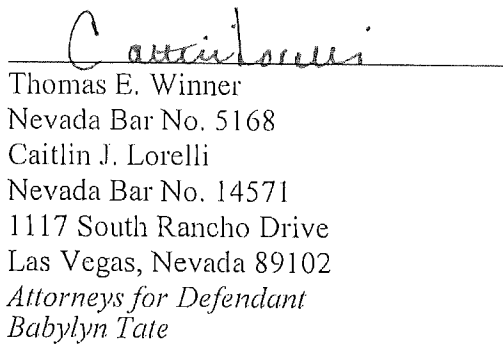 Caitlin Lorelli
Thomas E. Winner
Nevada Bar No. 5168
Caitlin J. Lorelli
Nevada Bar No. 14571
1117 South Rancho Drive
Las Vegas, Nevada 89102
Attorneys for Defendant
Babylyn Tate